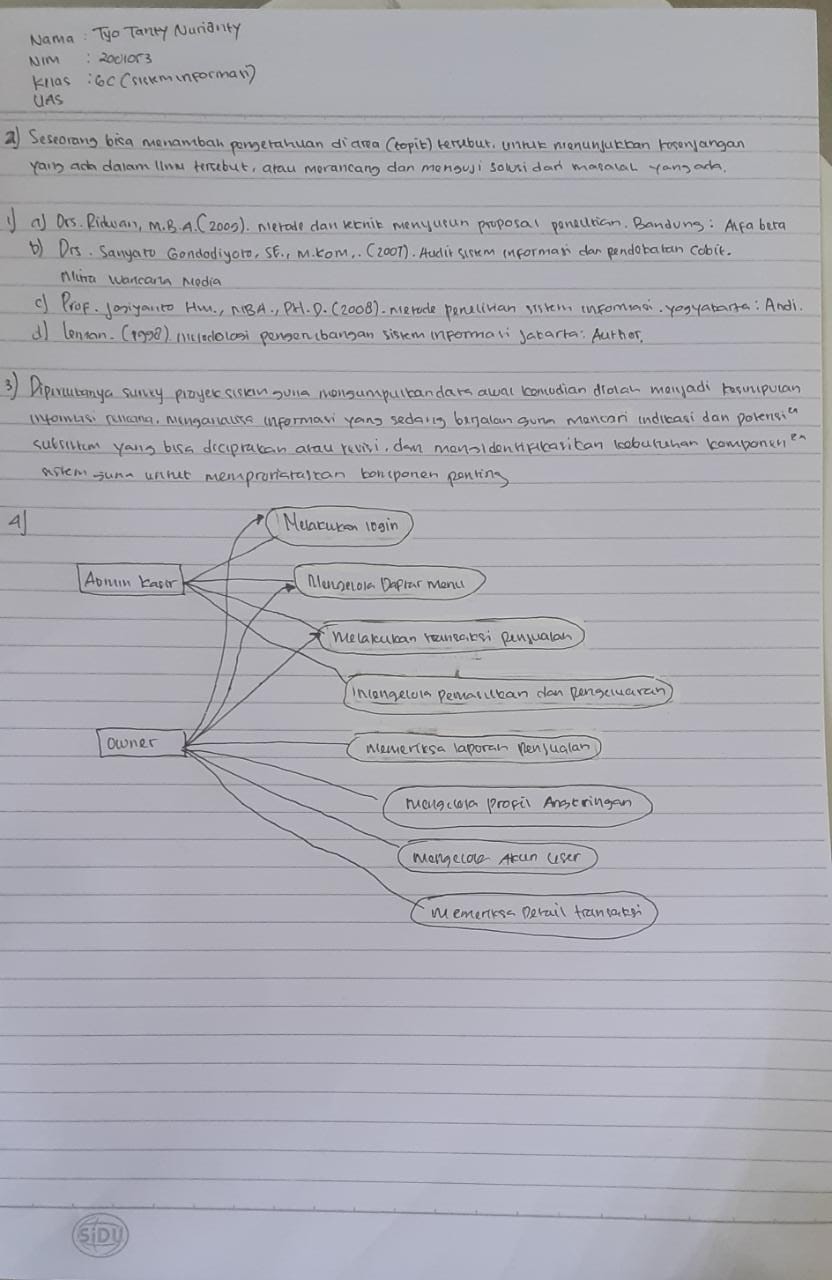 Nama : Tyo Tanty Nurianty
NIM : 2001053
Kelas : 6C (sistem informasi)
UAS
2) Seseorang bisa menambah pengetahuan di area (topik) tersebut, untuk menunjukkan kesenjangan
yang ada dalam ilmu tersebut, atau merancang dan menguji solusi dari masalah yang ada.
1) a) Drs. Ridwan, M.B.A. (2009). metode dan teknik menyusun proposal penelitian. Bandung : Alfa beta
b) Drs. Sanyoto Gondodiyoto, SE., M.Kom,. (2007). Audit sistem informasi dan pendekatan Cobit.
Mitra Wancana Media
c) Prof. Jogiyanto Hm., MBA., PH.D. (2008). metode penelitian sistem informasi. yogyakarta : Andi.
d) Leman. (1998) metodologi pengembangan sistem informasi Jakarta: Author.
3) Diperlukanya survey proyek sistem guna mengumpulkan data awal kemudian diolah menjadi kesimpulan
informasi rencana, menganalisa informasi yang sedang berjalan guna mencari indikasi dan potensi"
subsistem yang bisa diciptakan atau revisi, dan mengidentifikasikan kebutuhan komponen"
sistem guna untuk memprioritaskan komponen penting
4)
Melakukan login
Admin kasir
Mengelola Daptar menu
Melakukan transaksi penjualan
Mengelola pemasukan dan pengeluaran
Owner
memeriksa laporan penjualan
mengelola profil Angkringan
mengelola Akun User
Memeriksa Detail transaksi
SiDU